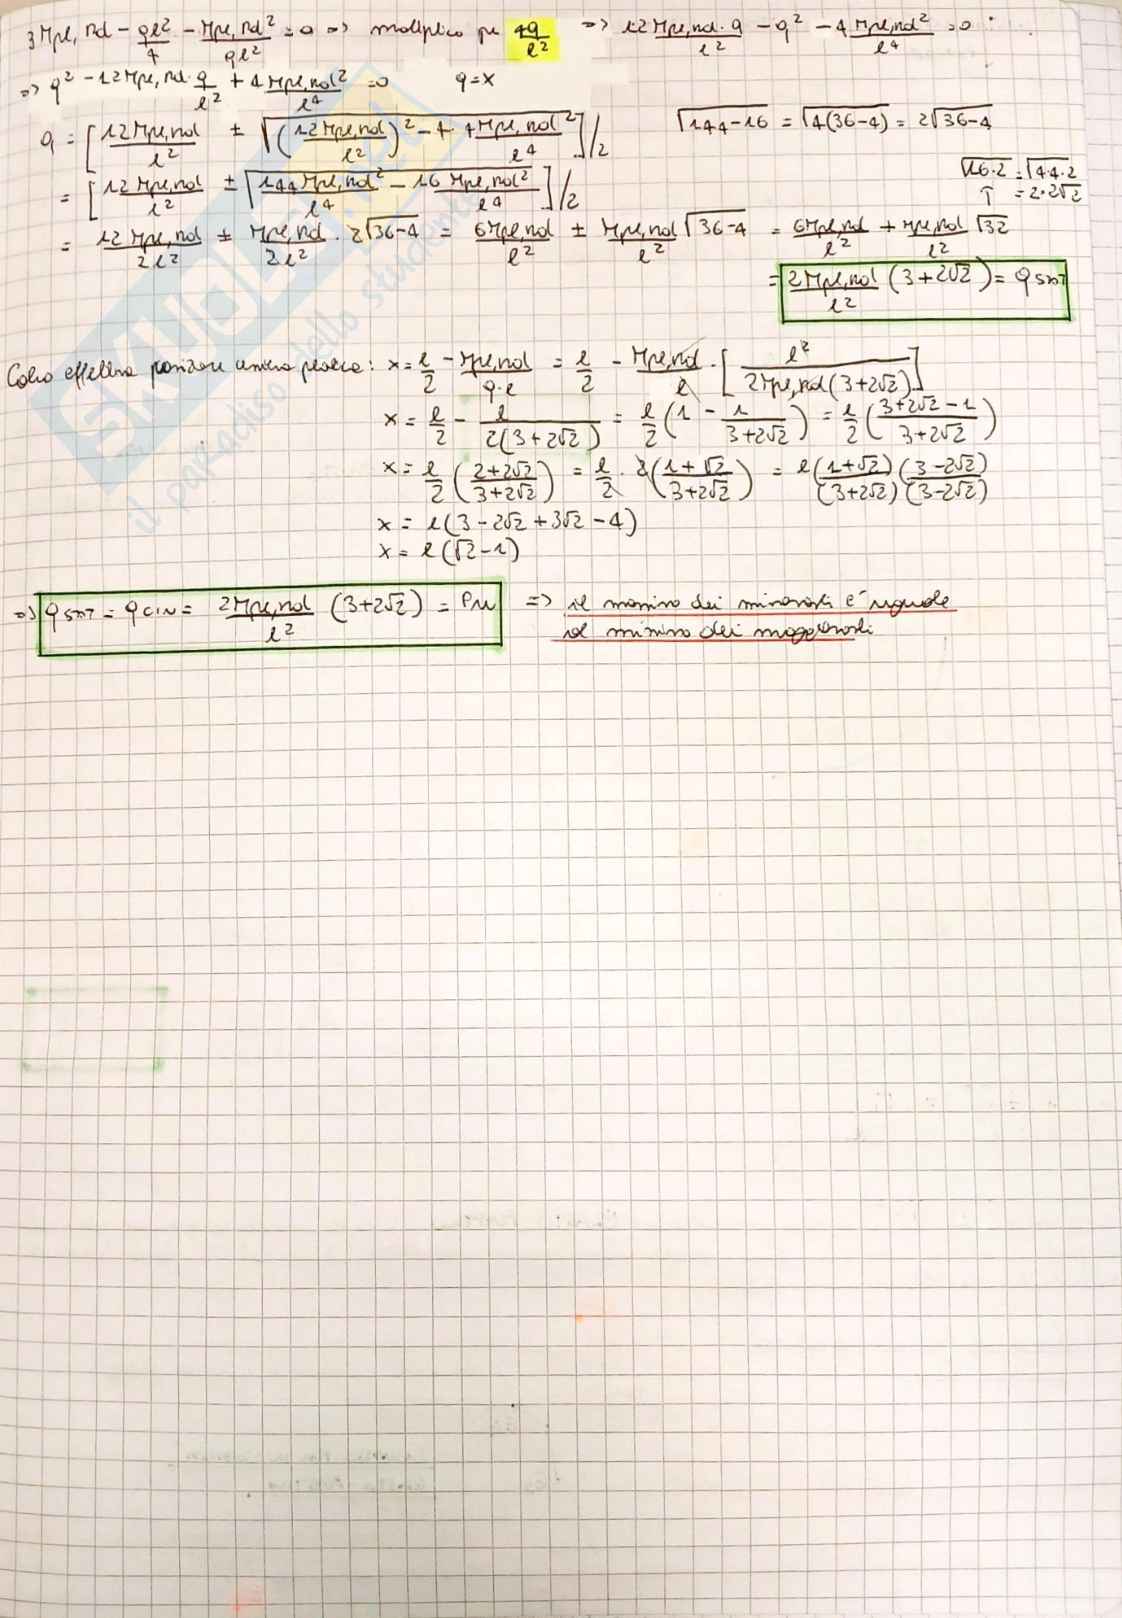 3Mpl,Rd - ql²/4 - Mpl,Rd²/ql² = 0 => moltiplico per 4q/l² => 12Mpl,Rd·q/l² - q² - 4Mpl,Rd²/l⁴ = 0
=> q² - 12Mpl,Rd·q/l² + 4Mpl,Rd²/l⁴ = 0 q = x
q = [12Mpl,Rd/l² ± √((12Mpl,Rd/l²)² - 4·4Mpl,Rd²/l⁴)]/2 √144-16 = √4(36-4) = 2√36-4
= [12Mpl,Rd/l² ± √(144Mpl,Rd²/l⁴ - 16Mpl,Rd²/l⁴)]/2 √16·2 = √4·4·2 = 2·2√2
= 12Mpl,Rd/2l² ± Mpl,Rd/2l² · 2√36-4 = 6Mpl,Rd/l² ± Mpl,Rd/l² √36-4 = 6Mpl,Rd/l² + Mpl,Rd/l² √32
= 2Mpl,Rd/l² (3+2√2) = q
Calcolo effettiva posizione cerniera plastica: x = l/2 - Mpl,Rd/q·l = l/2 - Mpl,Rd/l · [l²/2Mpl,Rd(3+2√2)]
x = l/2 - l/2(3+2√2) = l/2 (1 - 1/3+2√2) = l/2 (3+2√2-1/3+2√2)
x = l/2 (2+2√2/3+2√2) = l/2 · 2(1+√2/3+2√2) = l (1+√2)/(3+2√2) (3-2√2)/(3-2√2)
x = l(3-2√2+3√2-4)
x = l(√2-1)
=> q = q CIN = 2Mpl,Rd/l² (3+2√2) = Pu => il massimo dei minoranti è uguale
al minimo dei maggioranti
SKUOLA.net
il paradiso dello studente